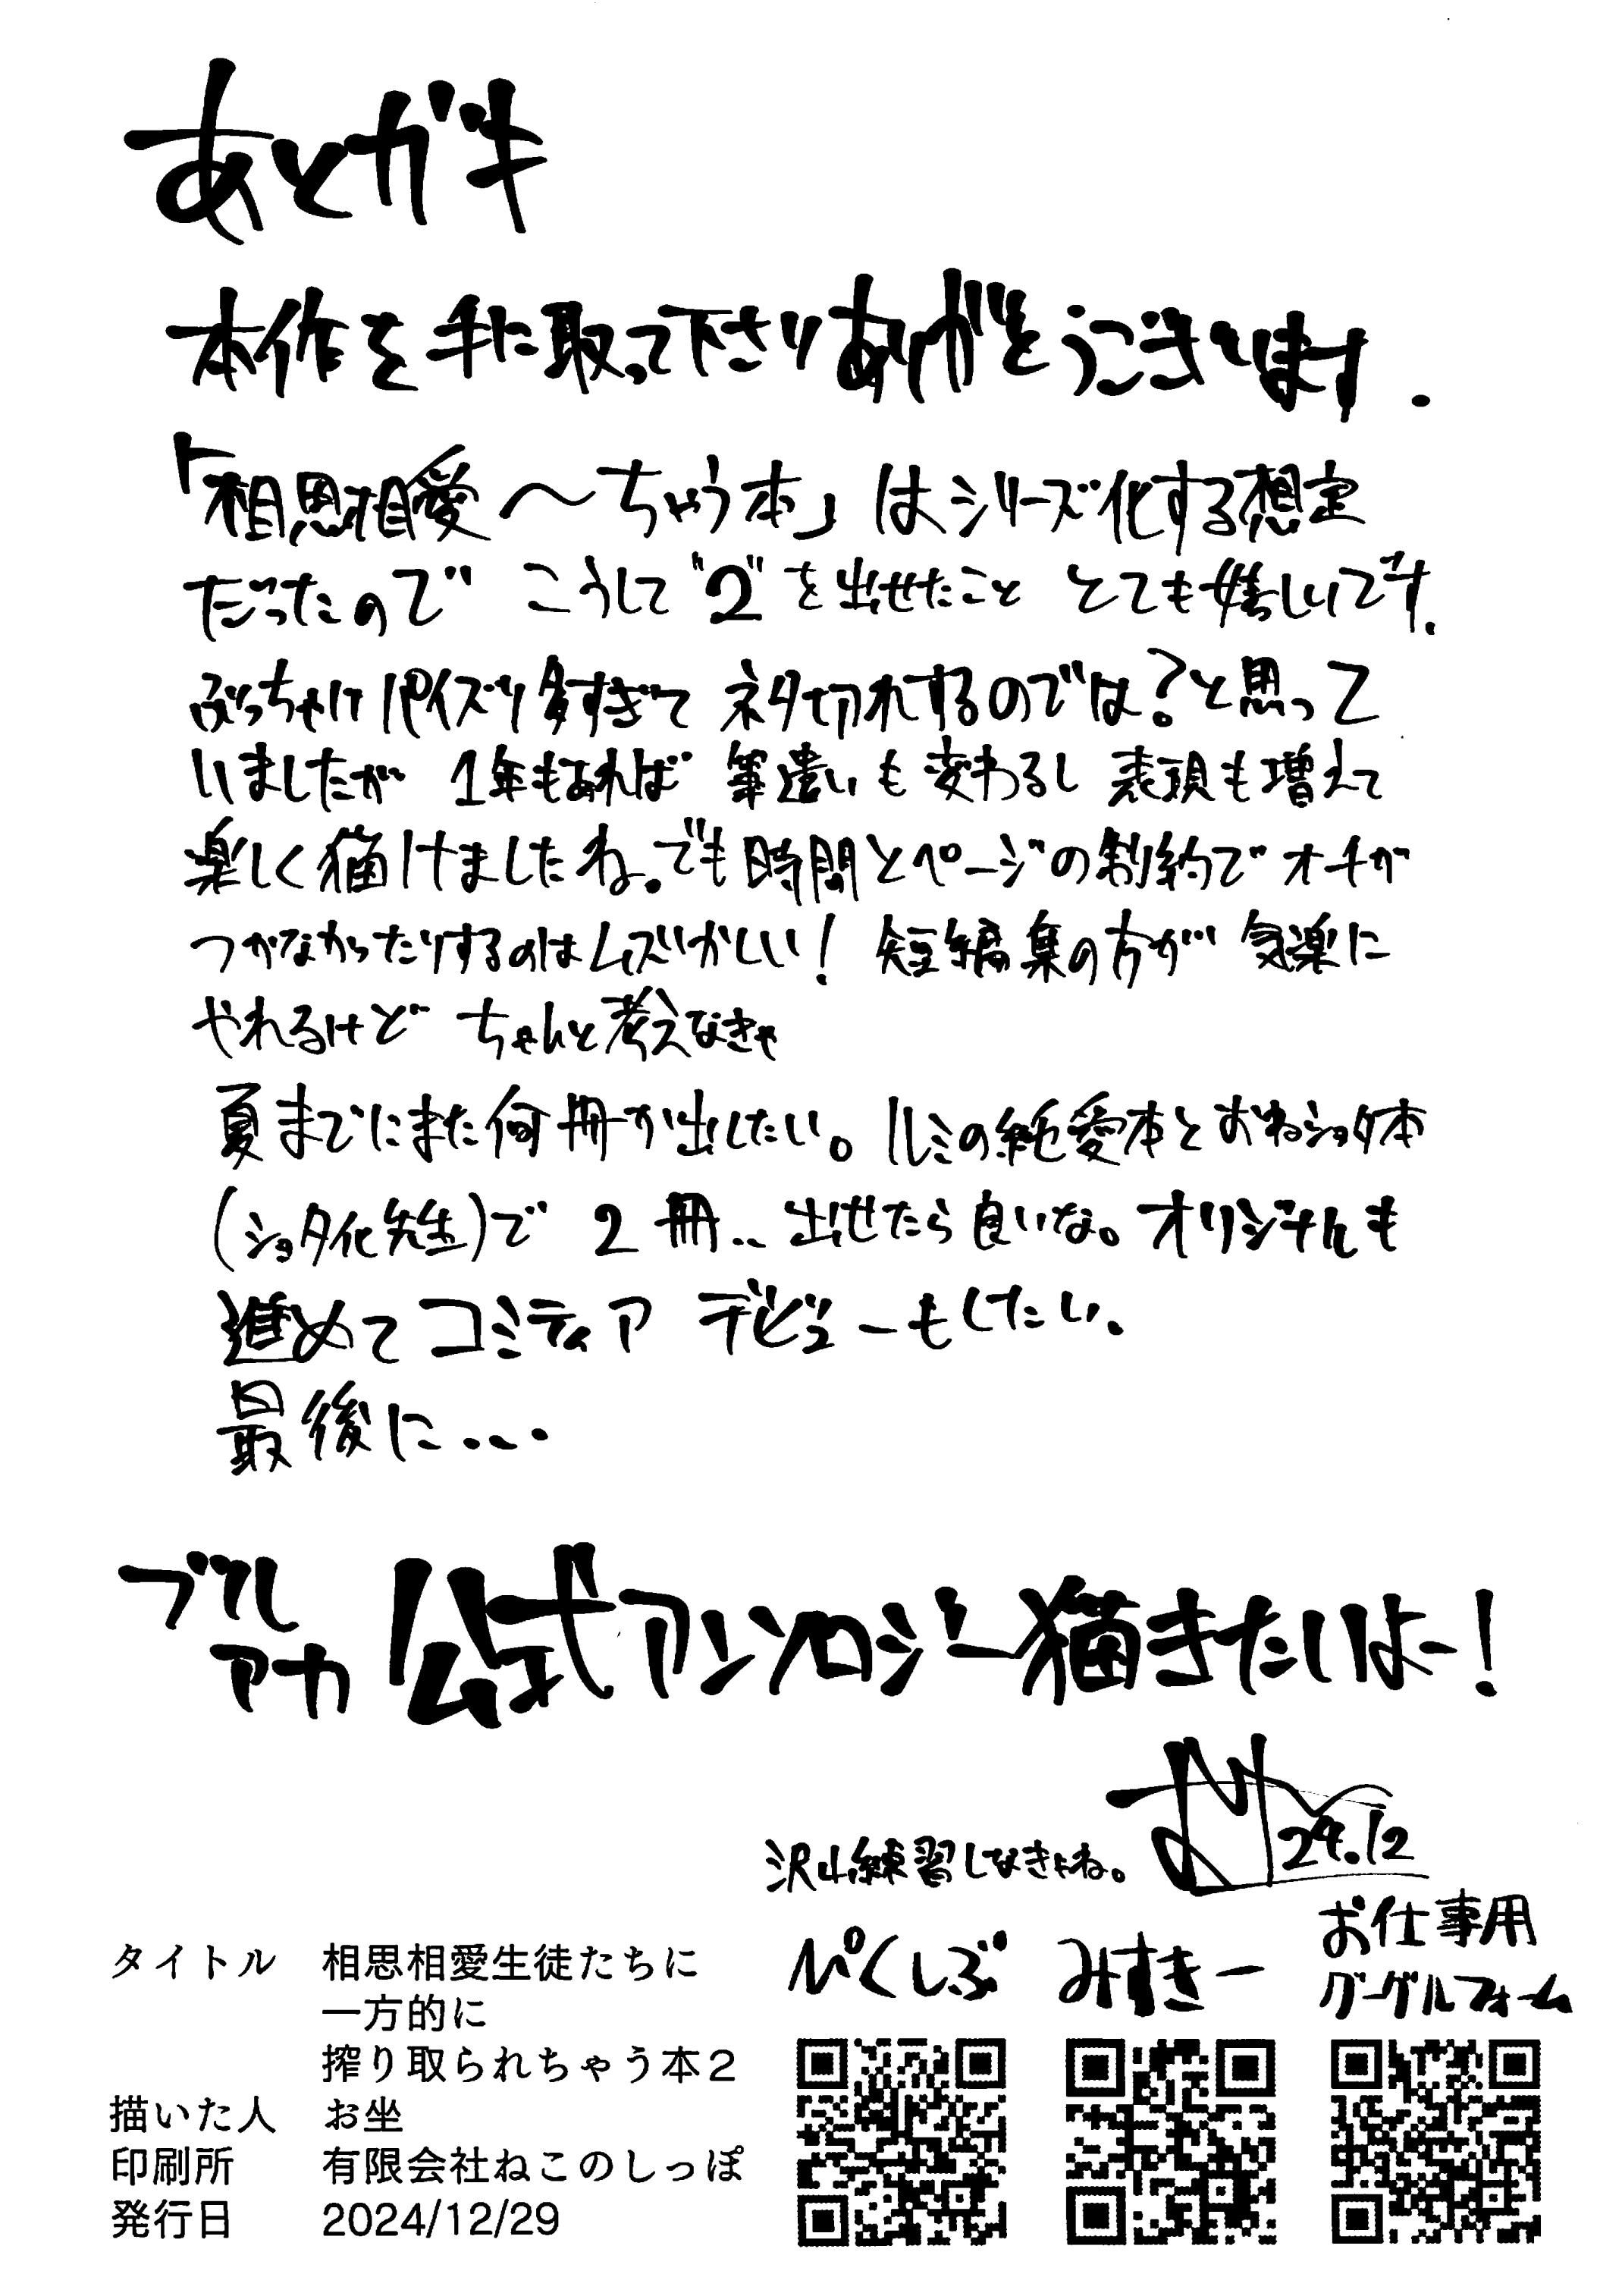 あとガキ
本作を手に取って下さりありがとうございます.
「相思相愛～ちゃう本」はシリーズ化する想定
だったので こうして"2"を出せたこと とても嬉しいです.
ぶっちゃけパイズリ多すぎて ネタ切れするのでは?と思って
いましたが 1年もあれば 筆遣いも変わるし 表現も増えて
楽しく描けましたね。でも時間とページの制約でオチが
つかなかったりするのはムズかしい! 短編集の方が 気楽に
やれるけど ちゃんと考えなきゃ
夏までにまた何冊か出したい。ルミの純愛本とおねショタ本
(ショタ化先生)で 2冊.. 出せたら良いな。オリジナルも
進めてコミティア デビューもしたい.
最後に...
ブルアカ 公式アンソロジー描きたいよー!
沢山練習しなきゃね。 24.12
ぴくしぶ みすきー お仕事用
グーグルフォーム
タイトル 相思相愛生徒たちに
一方的に
搾り取られちゃう本2
描いた人 お坐
印刷所 有限会社ねこのしっぽ
発行日 2024/12/29